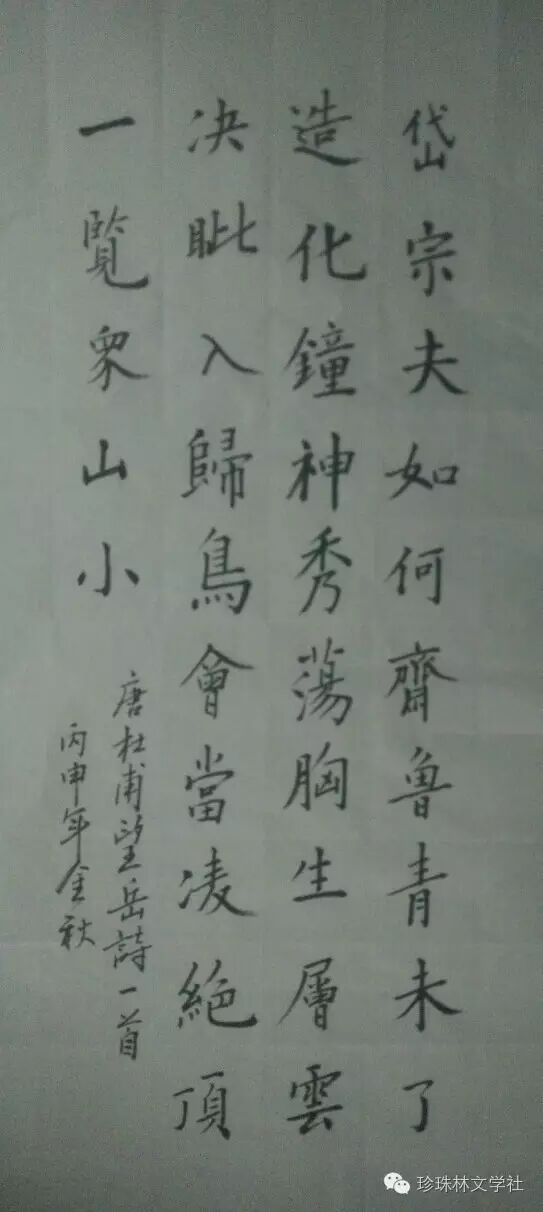 岱宗夫如何齊魯青未了
造化鐘神秀蕩胸生層雲
決眦入歸鳥會當凌絕頂
一覽眾山小
唐杜甫望岳詩一首
丙申年金秋
珍珠林文学社